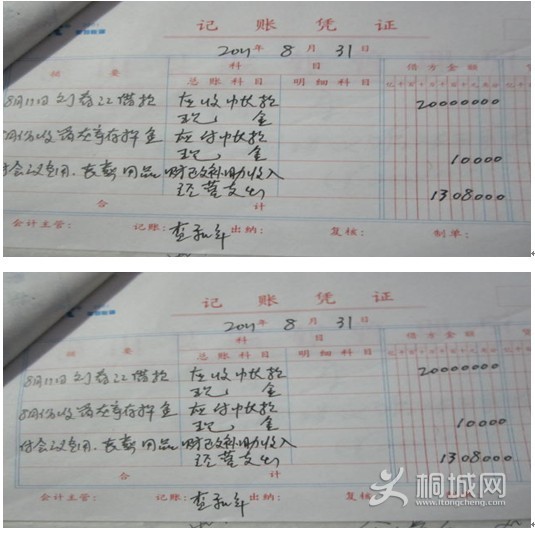 记账凭证
2011年8月31日
摘要 科目 借方金额
总账科目 明细科目
8月11日 借款 应收帐款 20000000
现金
月份收 存押金 应付帐款
现金 10000
会议费用、 用品 财政补助收入
经营支出 1308000
合计
会计主管: 记账: 查 年 出纳: 复核: 制单:
记账凭证
2011年8月31日
摘要 科目 借方金额
总账科目 明细科目
8月11日 借款 应收帐款 20000000
现金
8月份收 存押金 应付帐款
现金 10000
付会议费用、 用品 财政补助收入
经营支出 1308000
合计
会计主管: 记账: 查 年 出纳: 复核
桐城网
www.itongcheng.com